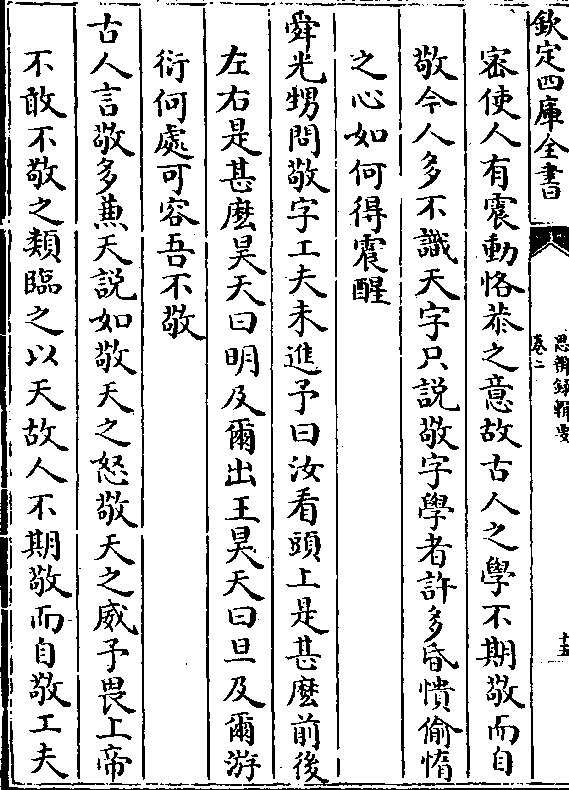 欽定四庫全書
思辨録輯要
卷二
十五
宻使人有震動恪恭之意故古人之學不期敬而自
敬今人多不識天字只説敬字學者許多昏憒偷惰
之心如何得震醒
舜光甥問敬字工夫未進予曰汝看頭上是甚麽前後
左右是甚麽昊天曰明及爾出王昊天曰旦及爾游
衍何處可容吾不敬
古人言敬多兼天説如敬天之怒敬天之威予畏上帝
不敢不敬之類臨之以天故人不期敬而自敬工夫